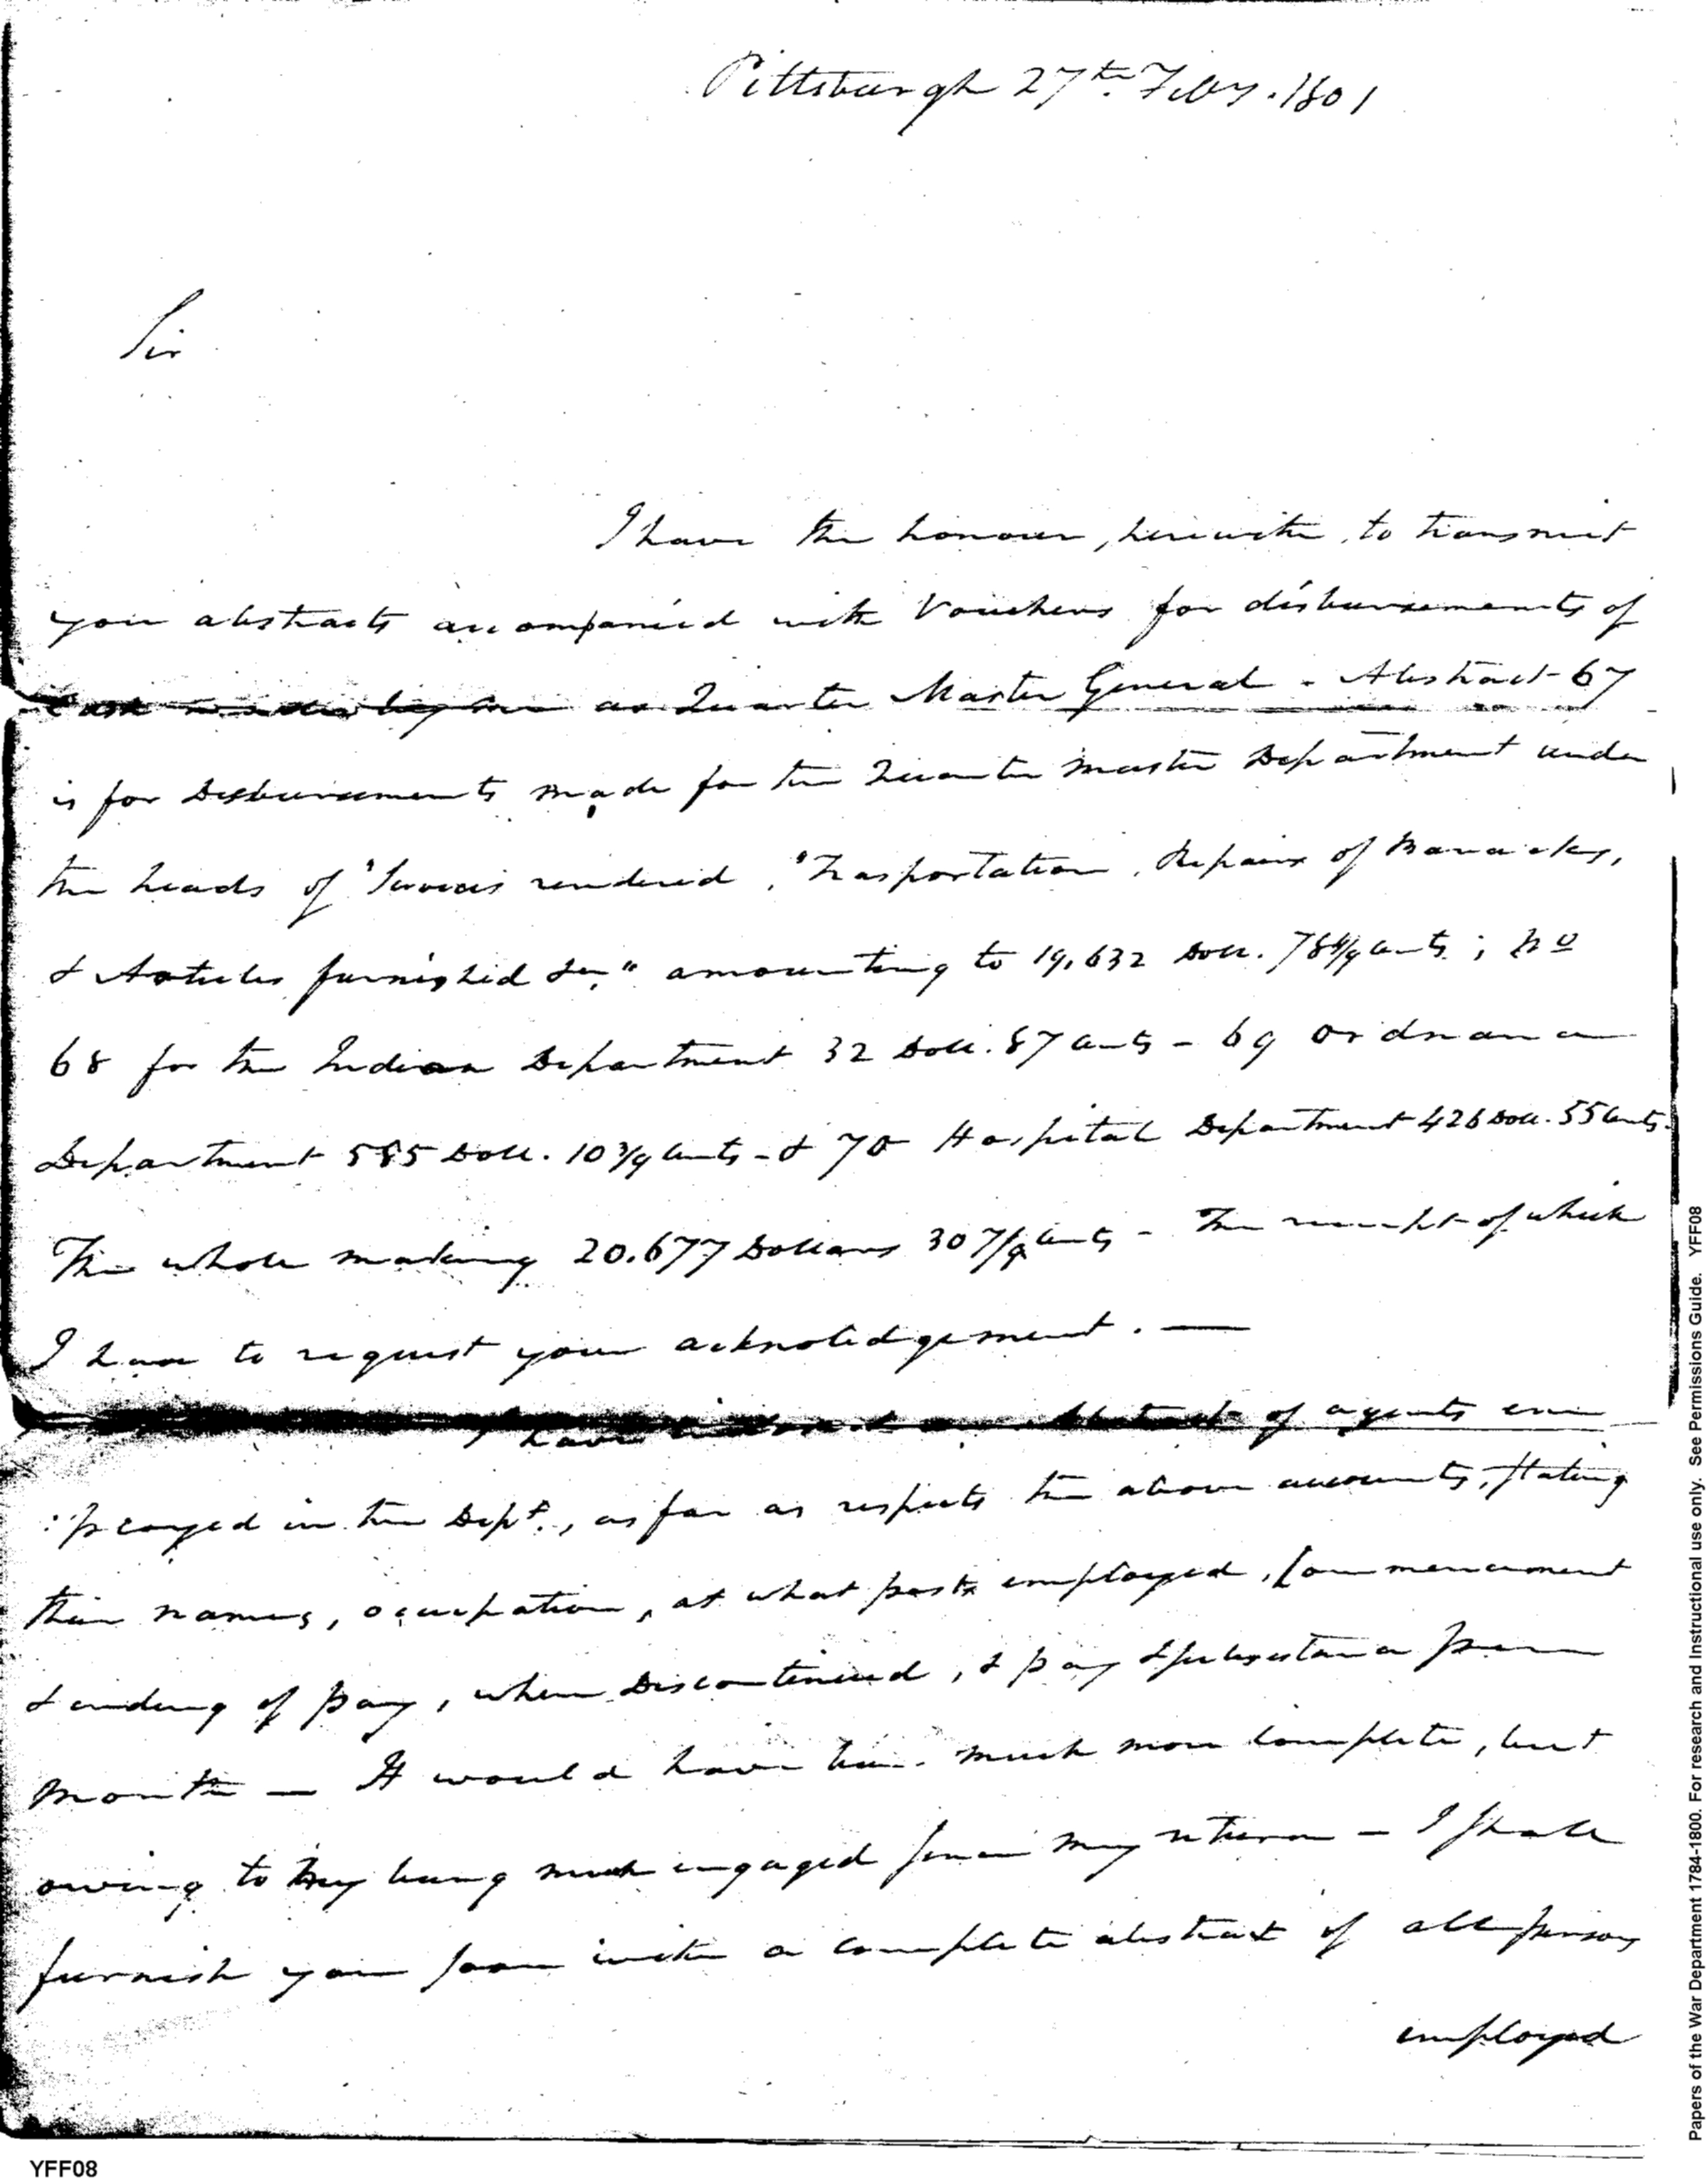 Pittsburgh 27th. Feby. 1801
Sir
I have the honour, herewith, to transmit
you abstracts accompanied with Vouchers for disbursements of
Cash made by me as Quarter Master General - Abstract 67
is for Disbursements made for the Quarter Master Department under
the heads of "Services rendered, "Trasportation, Repairs of Barracks,
& Articles furnished &c," amounting to 19,632 Doll. 78 4/9 Cents; No
68 for the Indian Department 32 Doll. 87 Cents - 69 Ordnance
Department 585 Doll. 10 3/9 Cents - & 70 Hospital Department 426 Doll. 55 Cents.
The whole making 20.677 Dollars 30 7/9 Cents - The receipt of which
I have to request your acknoledgement. —
I have inclosed an Abstract of agents em
:ployed in the Dept., as far as respects the above accounts, stating
their names, occupation, at what posts employed, Commencement
& ending of pay, when Discontinued, & pay & subsistance per
Month — It would have been much more complete, but
owing to my being much engaged since my return - I shall
furnish you soon with a complete abstract of all persons
employed
Papers of the War Department 1784-1800. For research and Instructional use only. See Permissions Guide. YFF08
YFF08